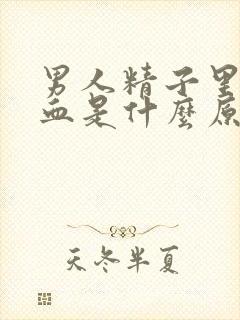 男人精子里
血是什麼原
天冬半夏